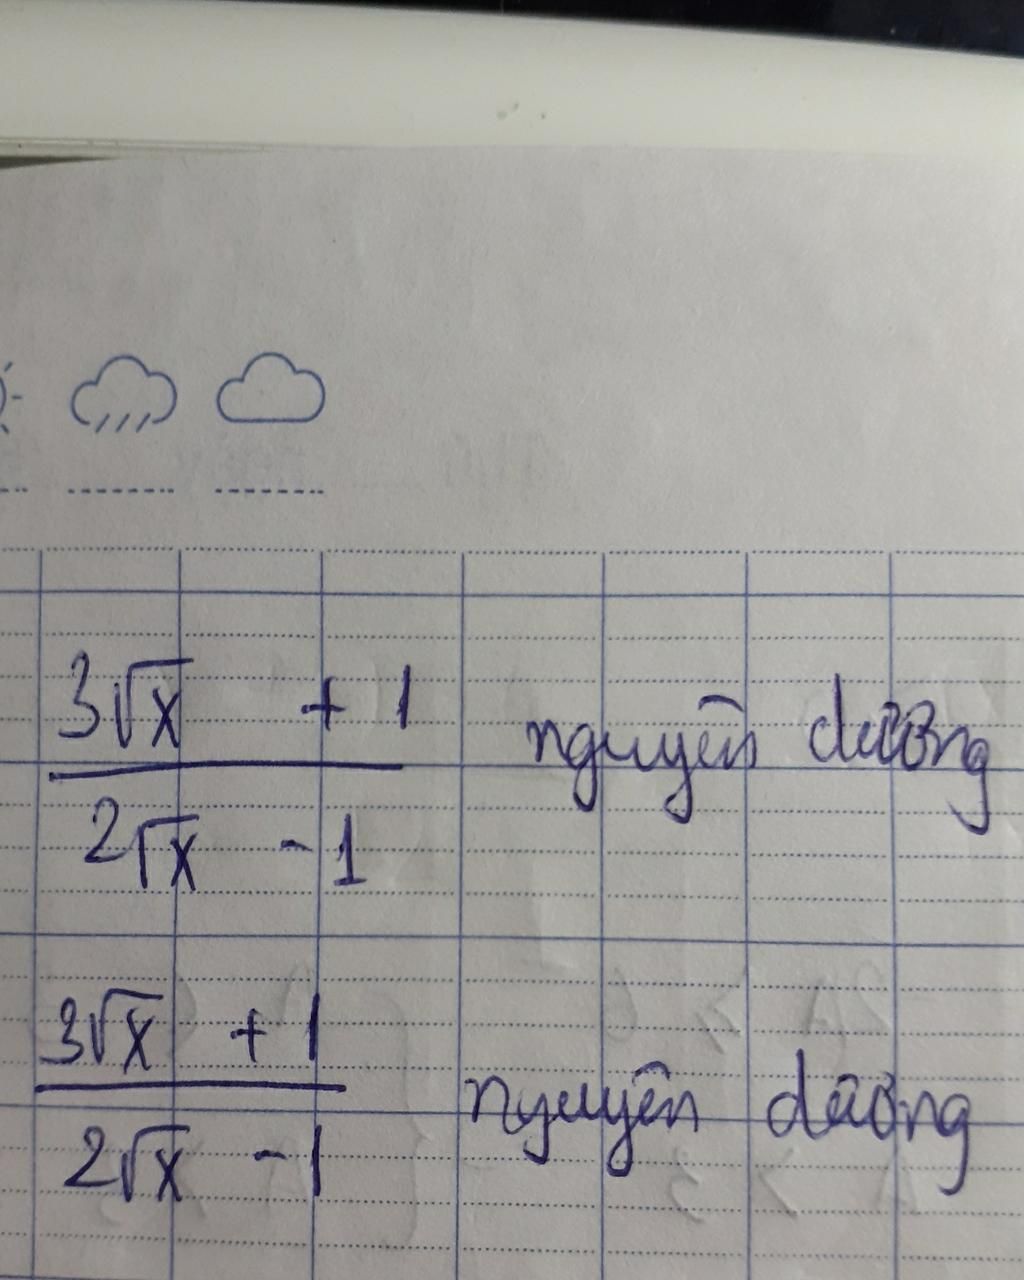 3√x + 1
2√x - 1 nguyên dương
3√x + 1
2√x - 1 nguyên dương